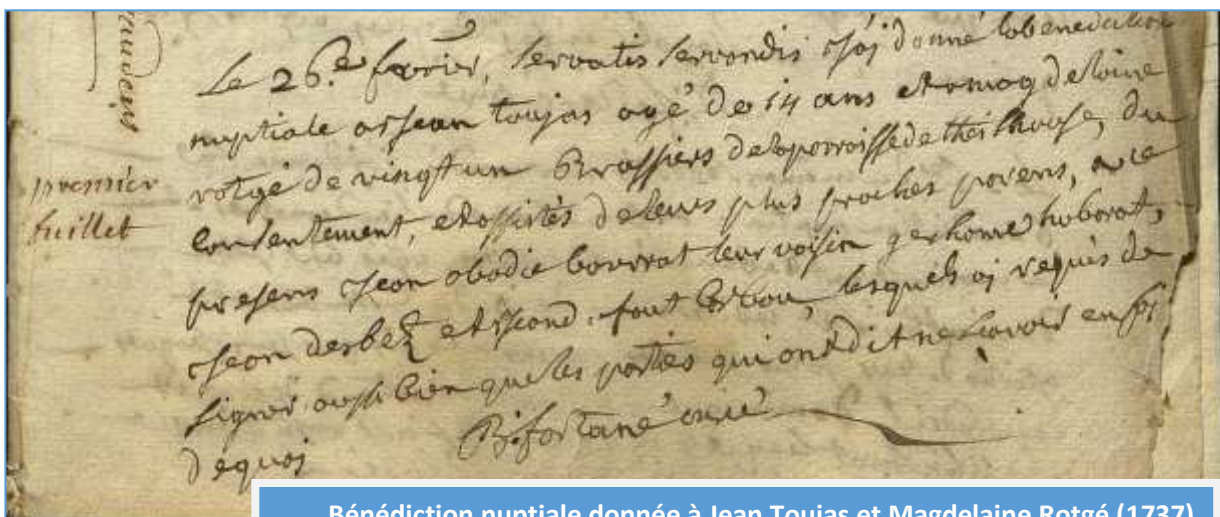 Le 26.e fevrier, servatis servandis j'ai donné la benediction
nuptiale a Jean toujas agé de 14 ans et a magdelaine
rotgé de vingt un Brassiers de la parroisse de theilhouse, du
premier
fuillet
consentement, et assistés de leurs plus proches parens, a ce
presens Jean abadie bourrat leur voisin
Jean derbez lesquels ai requis de
signer aussi bien que les parties qui ont dit ne scavoir en foi
dequoi
B. fortané curé
Bénédiction nuptiale donnée à Jean Toujas et Magdelaine Rotgé (1737)